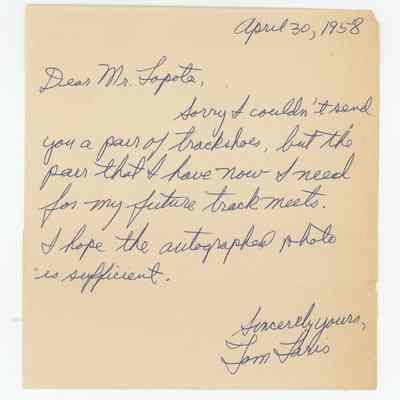 April 30, 1958
Dear Mr. Topota,
Sorry I couldn't send
you a pair of trackshoes, but the
pair that I have now I need
for my future track meets.
I hope the autographed photo
is sufficient.
Sincerely yours,
Tom